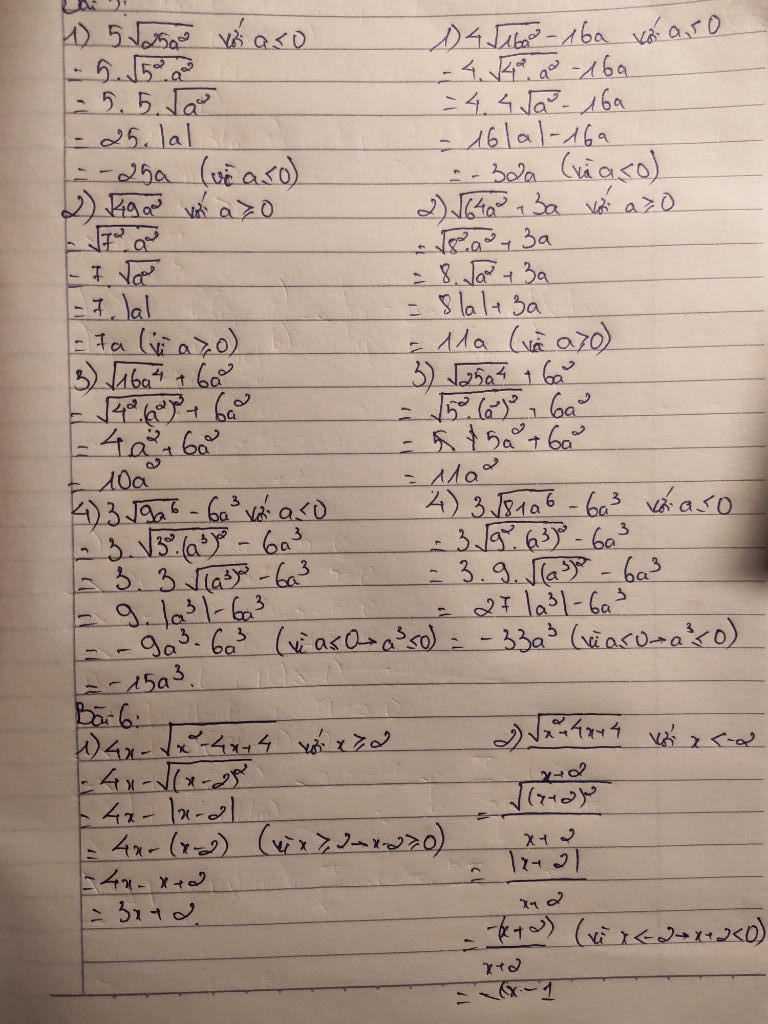 Bài 5:
1) 5√25a² với a≤0
= 5.√5².a²
= 5.5.√a²
= 25.|a|
= -25a (vì a≤0)
2) √49a² với a≥0
= √7².a²
= 7.√a²
= 7.|a|
= 7a (vì a≥0)
3) √16a⁴ + 6a²
= √4².(a²)² + 6a²
= 4a² + 6a²
= 10a²
4) 3√9a⁶ - 6a³ với a≤0
= 3.√3².(a³)² - 6a³
= 3.3√(a³)² - 6a³
= 9.|a³| - 6a³
= -9a³ - 6a³ (vì a≤0→a³≤0)
= -15a³.
1) 4√16a² - 16a với a≤0
= 4.√4².a² - 16a
= 4.4√a² - 16a
= 16|a| - 16a
= -32a (vì a≤0)
2) √64a² + 3a với a≥0
= √8².a² + 3a
= 8.√a² + 3a
= 8|a| + 3a
= 11a (vì a≥0)
3) √25a⁴ + 6a²
= √5².(a²)² + 6a²
= 5a² + 6a²
= 11a²
4) 3√81a⁶ - 6a³ với a≤0
= 3√9².(a³)² - 6a³
= 3.9.√(a³)² - 6a³
= 27|a³| - 6a³
= -33a³ (vì a≤0→a³≤0)
Bài 6:
1) 4x - √x²-4x+4 với x≥2
= 4x - √(x-2)²
= 4x - |x-2|
= 4x - (x-2) (vì x≥2→x-2≥0)
= 4x - x+2
= 3x+2.
2) √x²+4x+4 với x<-2
x+2
= √(x+2)²
x+2
= |x+2|
x+2
= -(x+2) (vì x<-2→x+2<0)
x+2
= -1